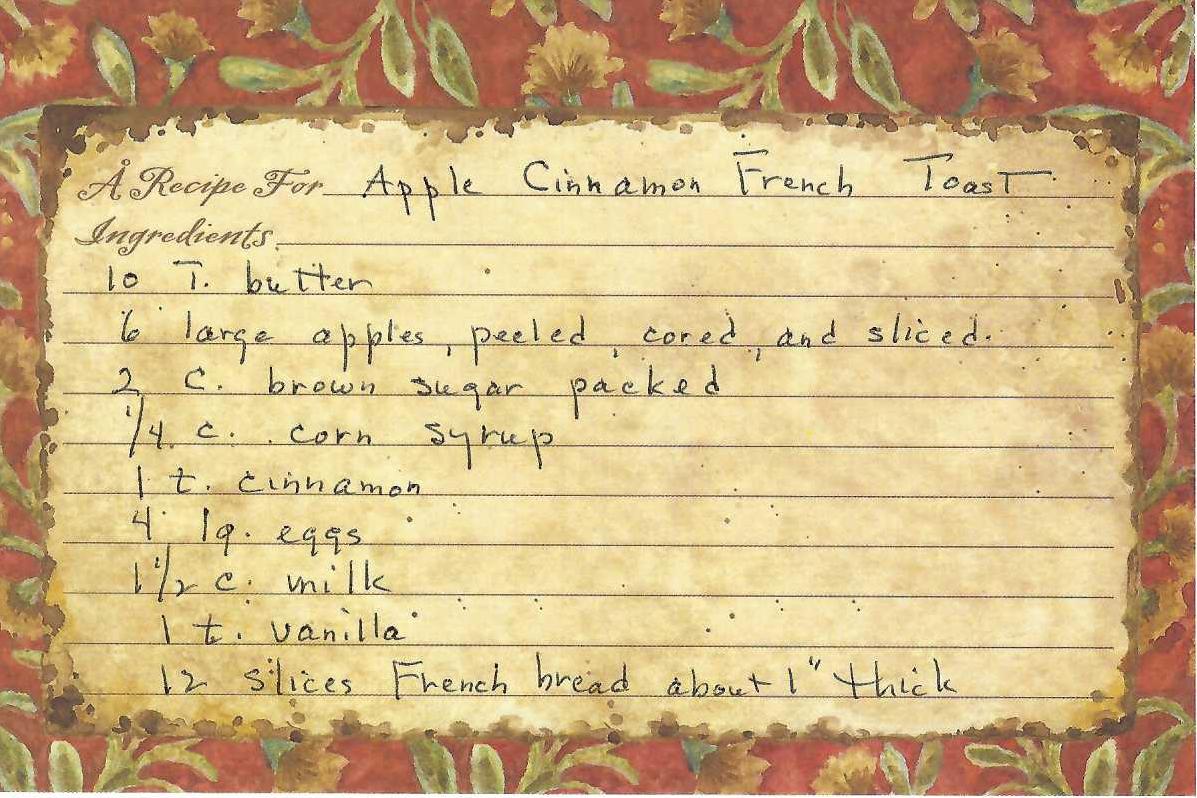 A Recipe For Apple Cinnamon French Toast
Ingredients
10 T. butter
6 large apples, peeled, cored, and sliced.
2 C. brown sugar packed
1/4 c. corn syrup
1 t. cinnamon
4 lg. eggs
1 1/2 c. milk
1 t. vanilla
12 slices French bread about 1" thick